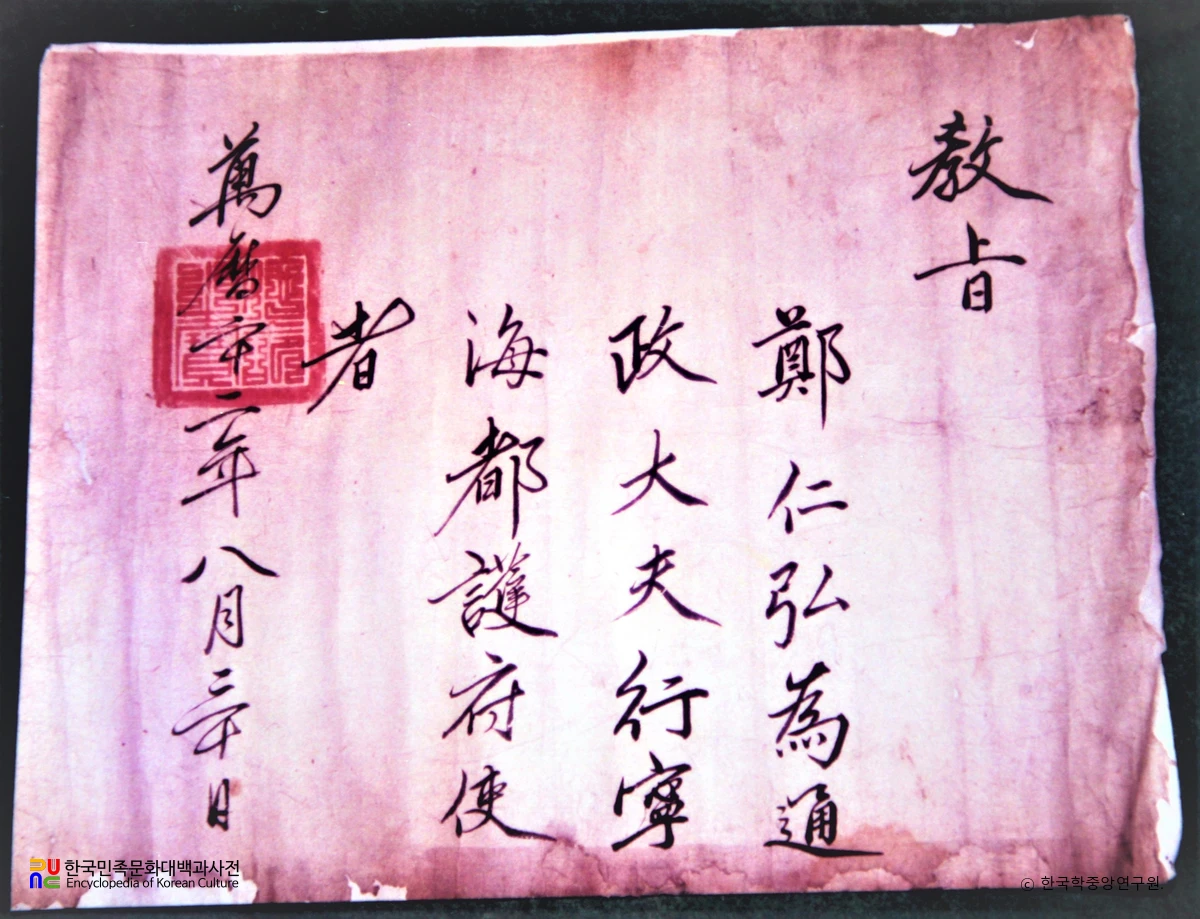 教旨
鄭仁弘為通
政大夫行寧
海都護府使
者
萬曆二十二年八月三十日
한국민족문화대백과사전
Encyclopedia of Korean Culture
© 한국학중앙연구원.